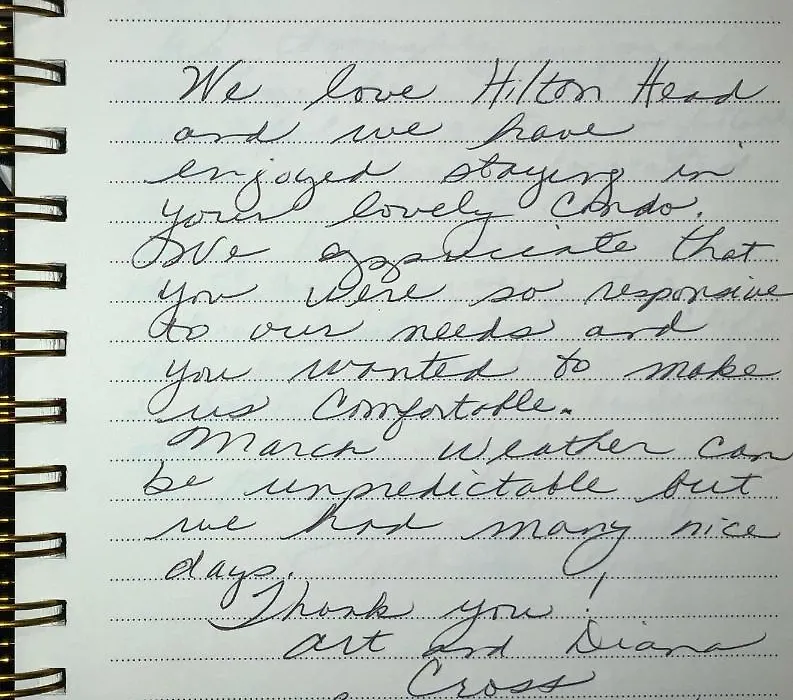 We love Hilton Head
and we have
enjoyed staying in
your lovely Condo.
We appreciate that
you were so responsive
to our needs and
you wanted to make
us Comfortable.
March weather can
be unpredictable but
we had many nice
days.
Thank you!
Art and Diana
Cross